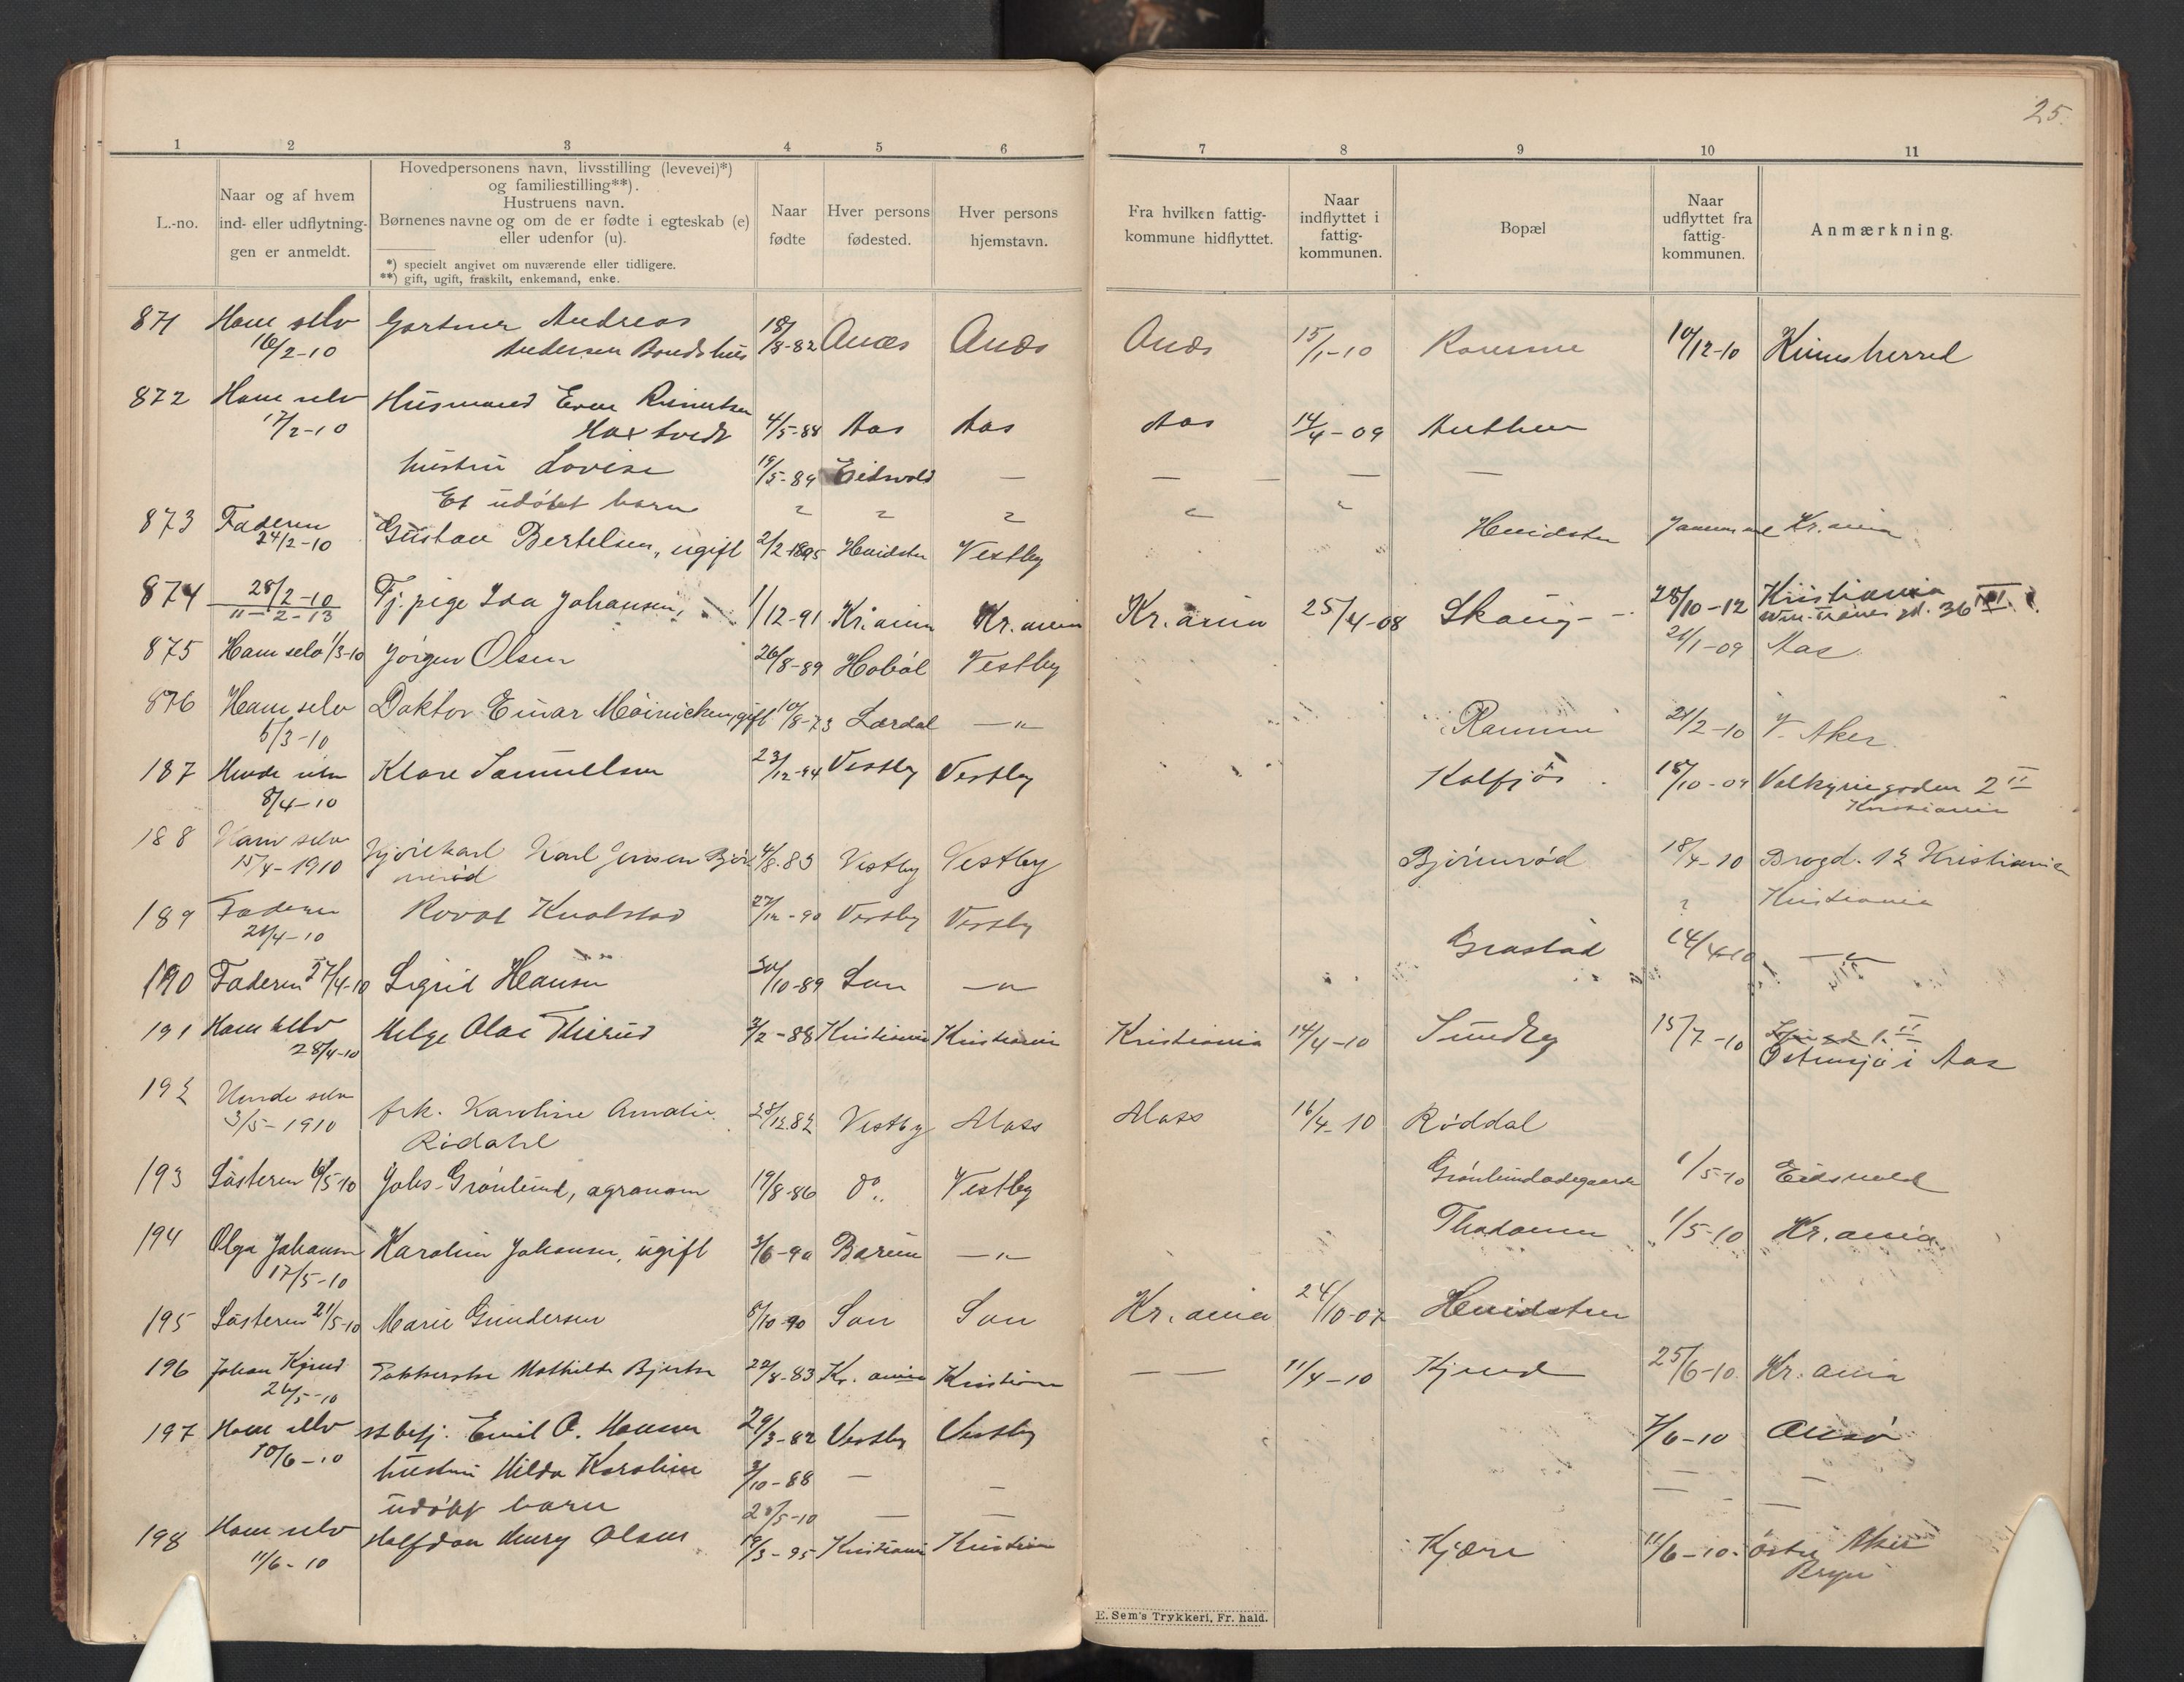 25.
1 2 3 4 5 6 7 8 9 10 11
L.-no.
Naar og af hvem
ind- eller udflytning-
gen er anmeldt.
Hovedpersonens navn, livsstilling (levevei)*)
og familiestilling**).
Hustruens navn.
Børnenes navne og om de er fødte i egteskab (e)
eller udenfor (u).
*) specielt angivet om nuværende eller tidligere.
**) gift, ugift, fraskilt, enkemand, enke.
Naar
fødte
Hver persons
fødested.
Hver persons
hjemstavn.
Fra hvilken fattig-
kommune hidflyttet.
Naar
indflyttet i
fattig-
kommunen.
Bopæl
Naar
udflyttet fra
fattig-
kommunen.
Anmærkning.
871 Ham selv Gartner Andreas 18/8-82 15/1-10 10/12-10
16/2-10 Andersen
872 Ham selv Husmand
17/2-10 4/5-88 Aas Aas Aas 14/4-09
hustru Lovise 19/5-89 Eidsvold — — — —
Et udøbt barn
873 Faderen Gustav Bertelsen, ugift 2/2-1895 Hvidsten Vestby Hvidsten Kr.ania
24/2-10
874 28/2-10 Tj. pige Ida Johansen, 1/12-91 Kr.ania Kr.ania Kr.ania 25/4-08 Skaug 28/10-12 Kristiania
11-2-13 36 III
875 Ham selv 1/3-10 Jørgen Olsen 26/8-89 Hobøl Vestby 21/1-09 Aas
876 Ham selv Doktor Einar Møinichen, gift 10/8-73 Lærdal —"— 21/2-10 V. Aker
5/3-10
187 Hende selv Klara Samuelsen 23/12-94 Vestby Vestby Kolfjøs 18/10-09 Valkyriegaden 2 II
8/4-10 Kristiania
188 Ham selv Karl Jensen Bjør- 4/8-83 Vestby Vestby Bjørnrød 18/4-10 Brogd. 12 Kristiania
15/4-1910 nrød
189 Faderen 27/12-90 Vestby Vestby ? Kristiania
21/4-10
190 Faderen 27/4-10 Sigrid Hansen 30/10-89 Son —"— Grastad 14/4-10 —"—
191 Ham selv Helge Olav 2/2-88 Kristiania Kristiania Kristiania 14/4-10 Sundby 15/7-10
28/4-10 Østensjø i Aas
192 Hende selv frk. Karoline Amalie 28/12.82 Vestby Moss Moss 16/4-10 Røddal
3/5-1910 Rödahl
193 Søsteren 6/5-10 Johs. Grønlund, agronom 19/8-86 do.. Vestby 1/5-10 Eidsvold
194 Olga Johansen Karolin Johansen, ugift 3/6-90 Bærum —"— 1/5-10 Kr.ania
17/5-10
195 Søsteren 21/5-10 Marie Gundersen 8/10-90 Son Son Kr.ania 24/10-07 Hvidsten
196 Johan Kjend Mathilde Bjerke 22/8-83 Kr.ania Kristiania — — 11/4-10 Kjend 25/6-10 Kr.ania
26/5-10
197 Ham selv st.betj. Emil O. Hansen 29/3-82 Vestby Vestby 7/6-10 Onsø
10/6-10 hustru Hilda Karoline 3/10-88 — — — —
udøbt barn 28/5-10 — — — —
198 Ham selv Halfdan Henry Olsen 19/3-95 Kristiania Kristiania Kjære 11/6-10. Østre Aker
11/6-10 Bryn
E. Sem's Trykkeri, Fr. hald.